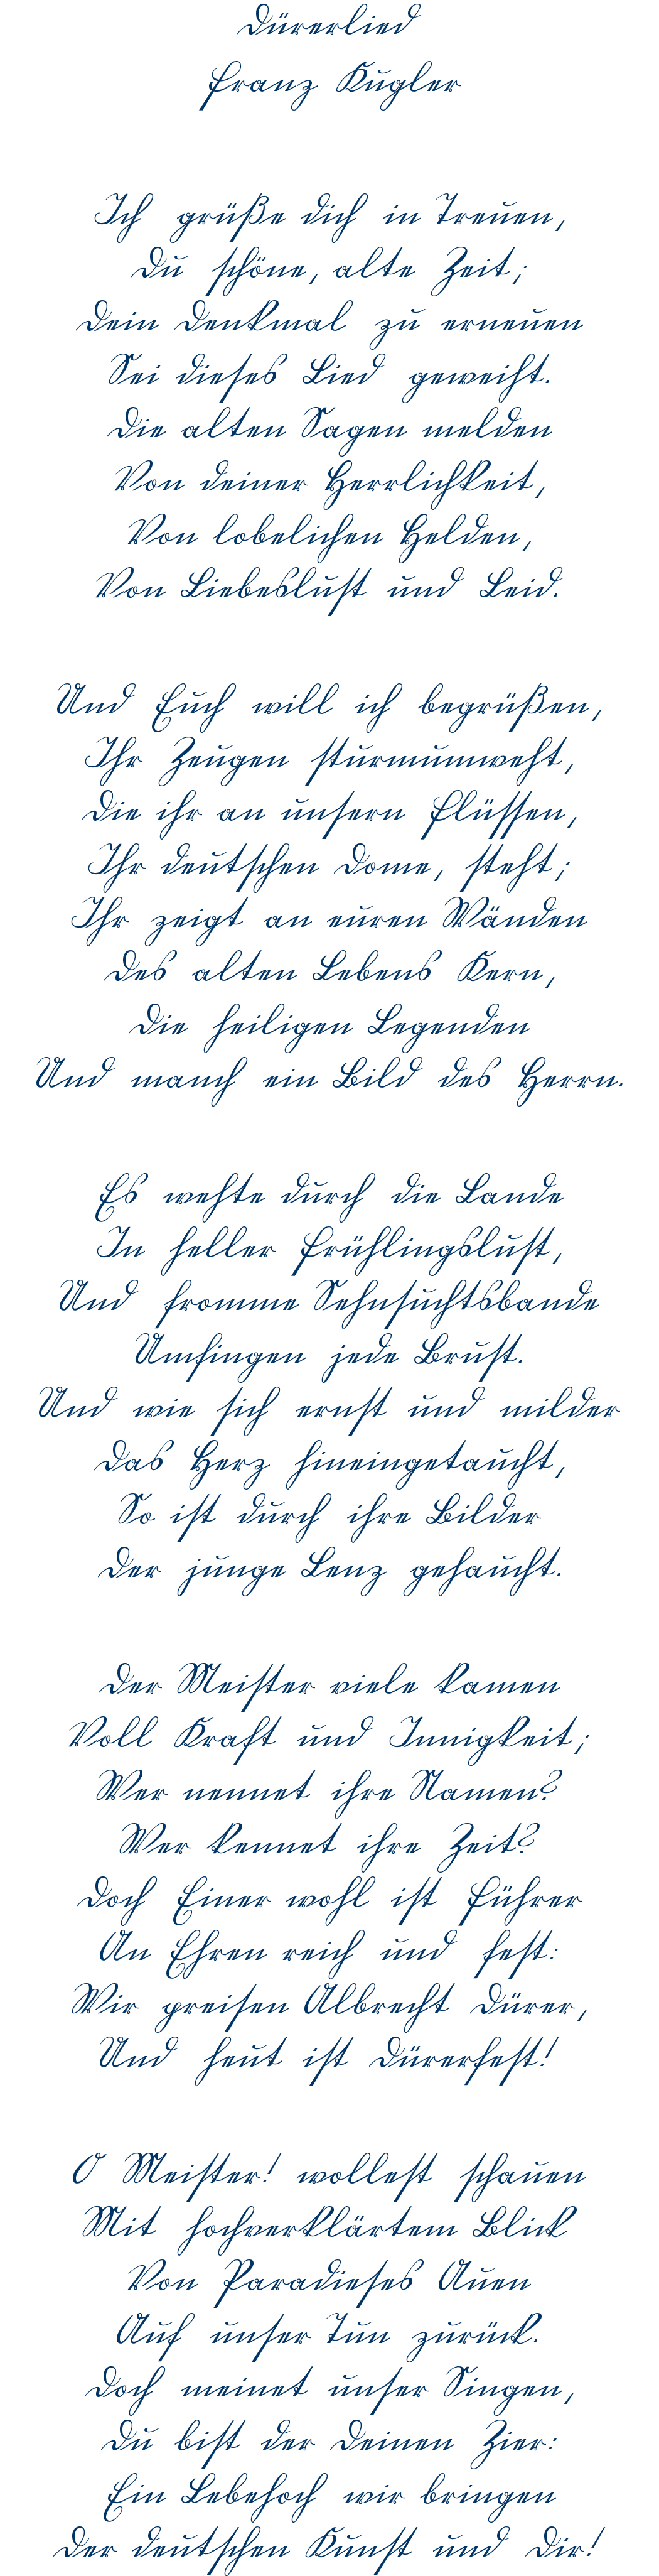 Dürerlied
Franz Kugler
Ich grüße dich in Treuen,
Du schöne, alte Zeit;
Dein Denkmal zu erneuen
Sei dieses Lied geweiht.
Die alten Sagen melden
Von deiner Herrlichkeit,
Von lobelichen Helden,
Von Liebeslust und Leid.
Und Euch will ich begrüßen,
Ihr Zeugen sturmumweht,
Die ihr an unsern Flüssen,
Ihr deutschen Dome, steht;
Ihr zeigt an euren Wänden
Des alten Lebens Kern,
Die heiligen Legenden
Und manch ein Bild des Herrn.
Es wehte durch die Lande
In heller Frühlingslust,
Und fromme Sehnsuchtsbande
Umfingen jede Brust.
Und wie sich ernst und milder
Das Herz hineingetaucht,
So ist durch ihre Bilder
Der junge Lenz gehaucht.
Der Meister viele kamen
Voll Kraft und Innigkeit;
Wer nennet ihre Namen?
Wer kennet ihre Zeit?
Doch Einer wohl ist Führer
An Ehren reich und fest:
Wir preisen Albrecht Dürer,
Und heut ist Dürerfest!
O Meister! wollest schauen
Mit hochverklärtem Blick
Von Paradieses Auen
Auf unser Tun zurück.
Doch meinet unser Singen,
Du bist der Deinen Zier:
Ein Lebehoch wir bringen
Der deutschen Kunst und Dir!